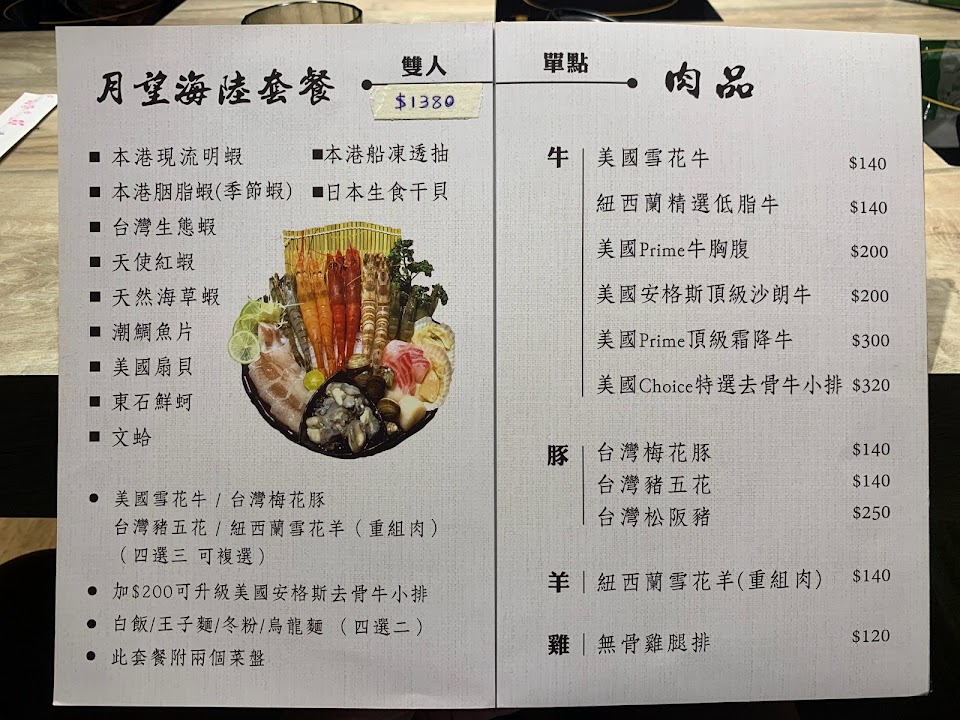 月望海陸套餐
雙人
$1380
■ 本港現流明蝦
■ 本港船凍透抽
■ 本港胭脂蝦(季節蝦)
■ 日本生食干貝
■ 台灣生態蝦
■ 天使紅蝦
■ 天然海草蝦
■ 潮鯛魚片
■ 美國扇貝
■ 東石鮮蚵
■ 文蛤
● 美國雪花牛 / 台灣梅花豚
台灣豬五花 / 紐西蘭雪花羊（重組肉）
（四選三 可複選）
● 加$200可升級美國安格斯去骨牛小排
● 白飯/王子麵/冬粉/烏龍麵 （四選二）
● 此套餐附兩個菜盤
單點
肉品
牛
美國雪花牛 $140
紐西蘭精選低脂牛 $140
美國Prime牛胸腹 $200
美國安格斯頂級沙朗牛 $200
美國Prime頂級霜降牛 $300
美國Choice特選去骨牛小排 $320
豚
台灣梅花豚 $140
台灣豬五花 $140
台灣松阪豬 $250
羊
紐西蘭雪花羊(重組肉) $140
雞
無骨雞腿排 $120